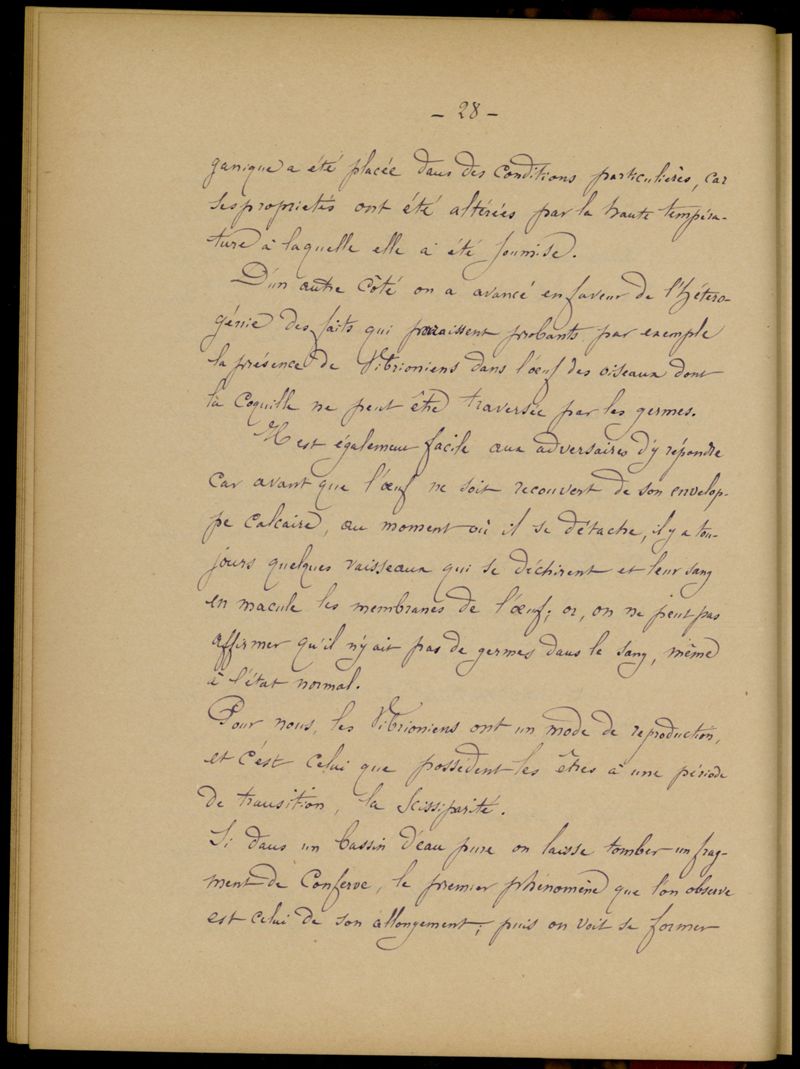 - 28 -
ganique a été placée dans des conditions particulières, car
ses propriétés ont été altérées par la haute tempéra-
ture à laquelle elle a été soumise.
D'un autre côté on a avancé en faveur de l'hétéro-
génie des faits qui paraissent probants, par exemple
la présence de Vibrioniens dans l'œuf des oiseaux dont
la coquille ne peut être traversée par les germes.
Il est également facile aux adversaires d'y répondre
car avant que l'œuf ne soit recouvert de son envelop-
pe calcaire, au moment où il se détache, il y a tou-
jours quelques vaisseaux qui se déchirent et leur sang
en macule les membranes de l'œuf; or, on ne peut pas
affirmer qu'il n'y ait pas de germes dans le sang, même
à l'état normal.
Pour nous, les Vibrioniens ont un mode de reproduction,
et c'est celui que possèdent les êtres à une période
de transition, la Scissiparité.
Si dans un bassin d'eau pure on laisse tomber un frag-
ment de Conferve, le premier phénomène que l'on observe
est celui de son allongement; puis on voit se former